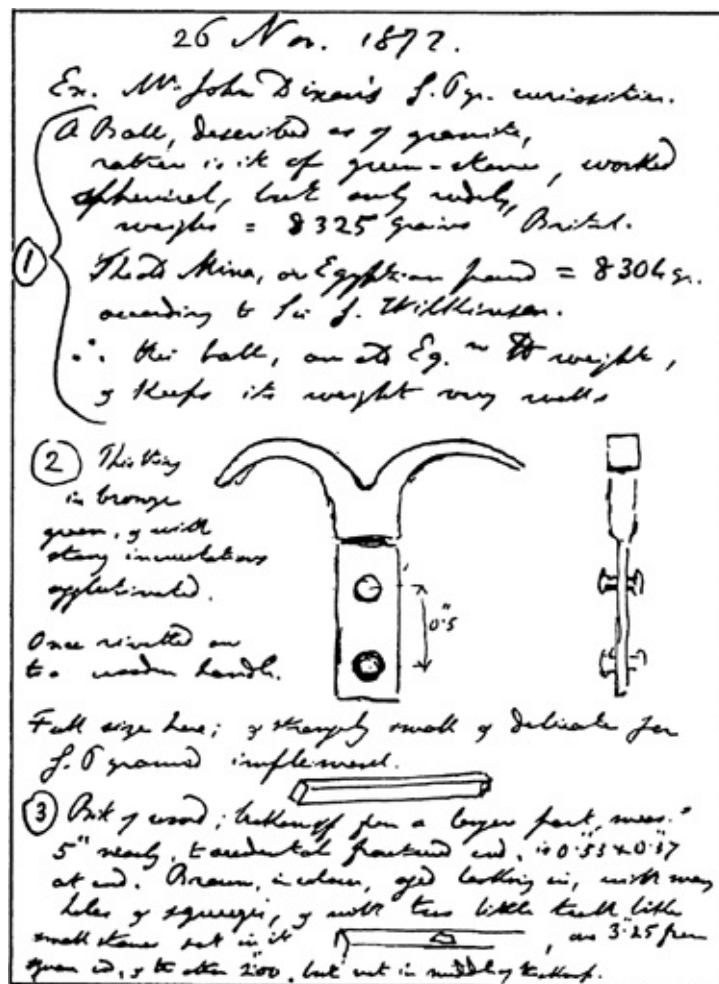 26 Nov. 1872.
Ex. Mr. John Dixon's G. Pyr. curiosities.
A Ball, described as of granite,
rather is it of green-stone, worked
spherical, but only rudely,
weighs = 8325 grains British.
1
Mina, or Egyptian pound = 8304 gr.
according to Sir G. Wilkinson.
∴ this ball, an Eg.n ℔ weight,
& keeps its weight very well
2 This thing
in bronze
green, & with
stony incrustations
agglutinated.
0".5
Once rivetted on
to a wooden handle.
Full size here; & strangely small & delicate for
G. Pyramid implement.
3 Bit of wood; broken off from a larger part, meas.s
5" nearly, to accidental fractured end, is 0".53 x 0".37
at end. Brown, in colour, aged looking in, with many
holes & squeezes, & with two little
small stones set in it, one 3".25 from
end, & the other 2".00, but not in middle of